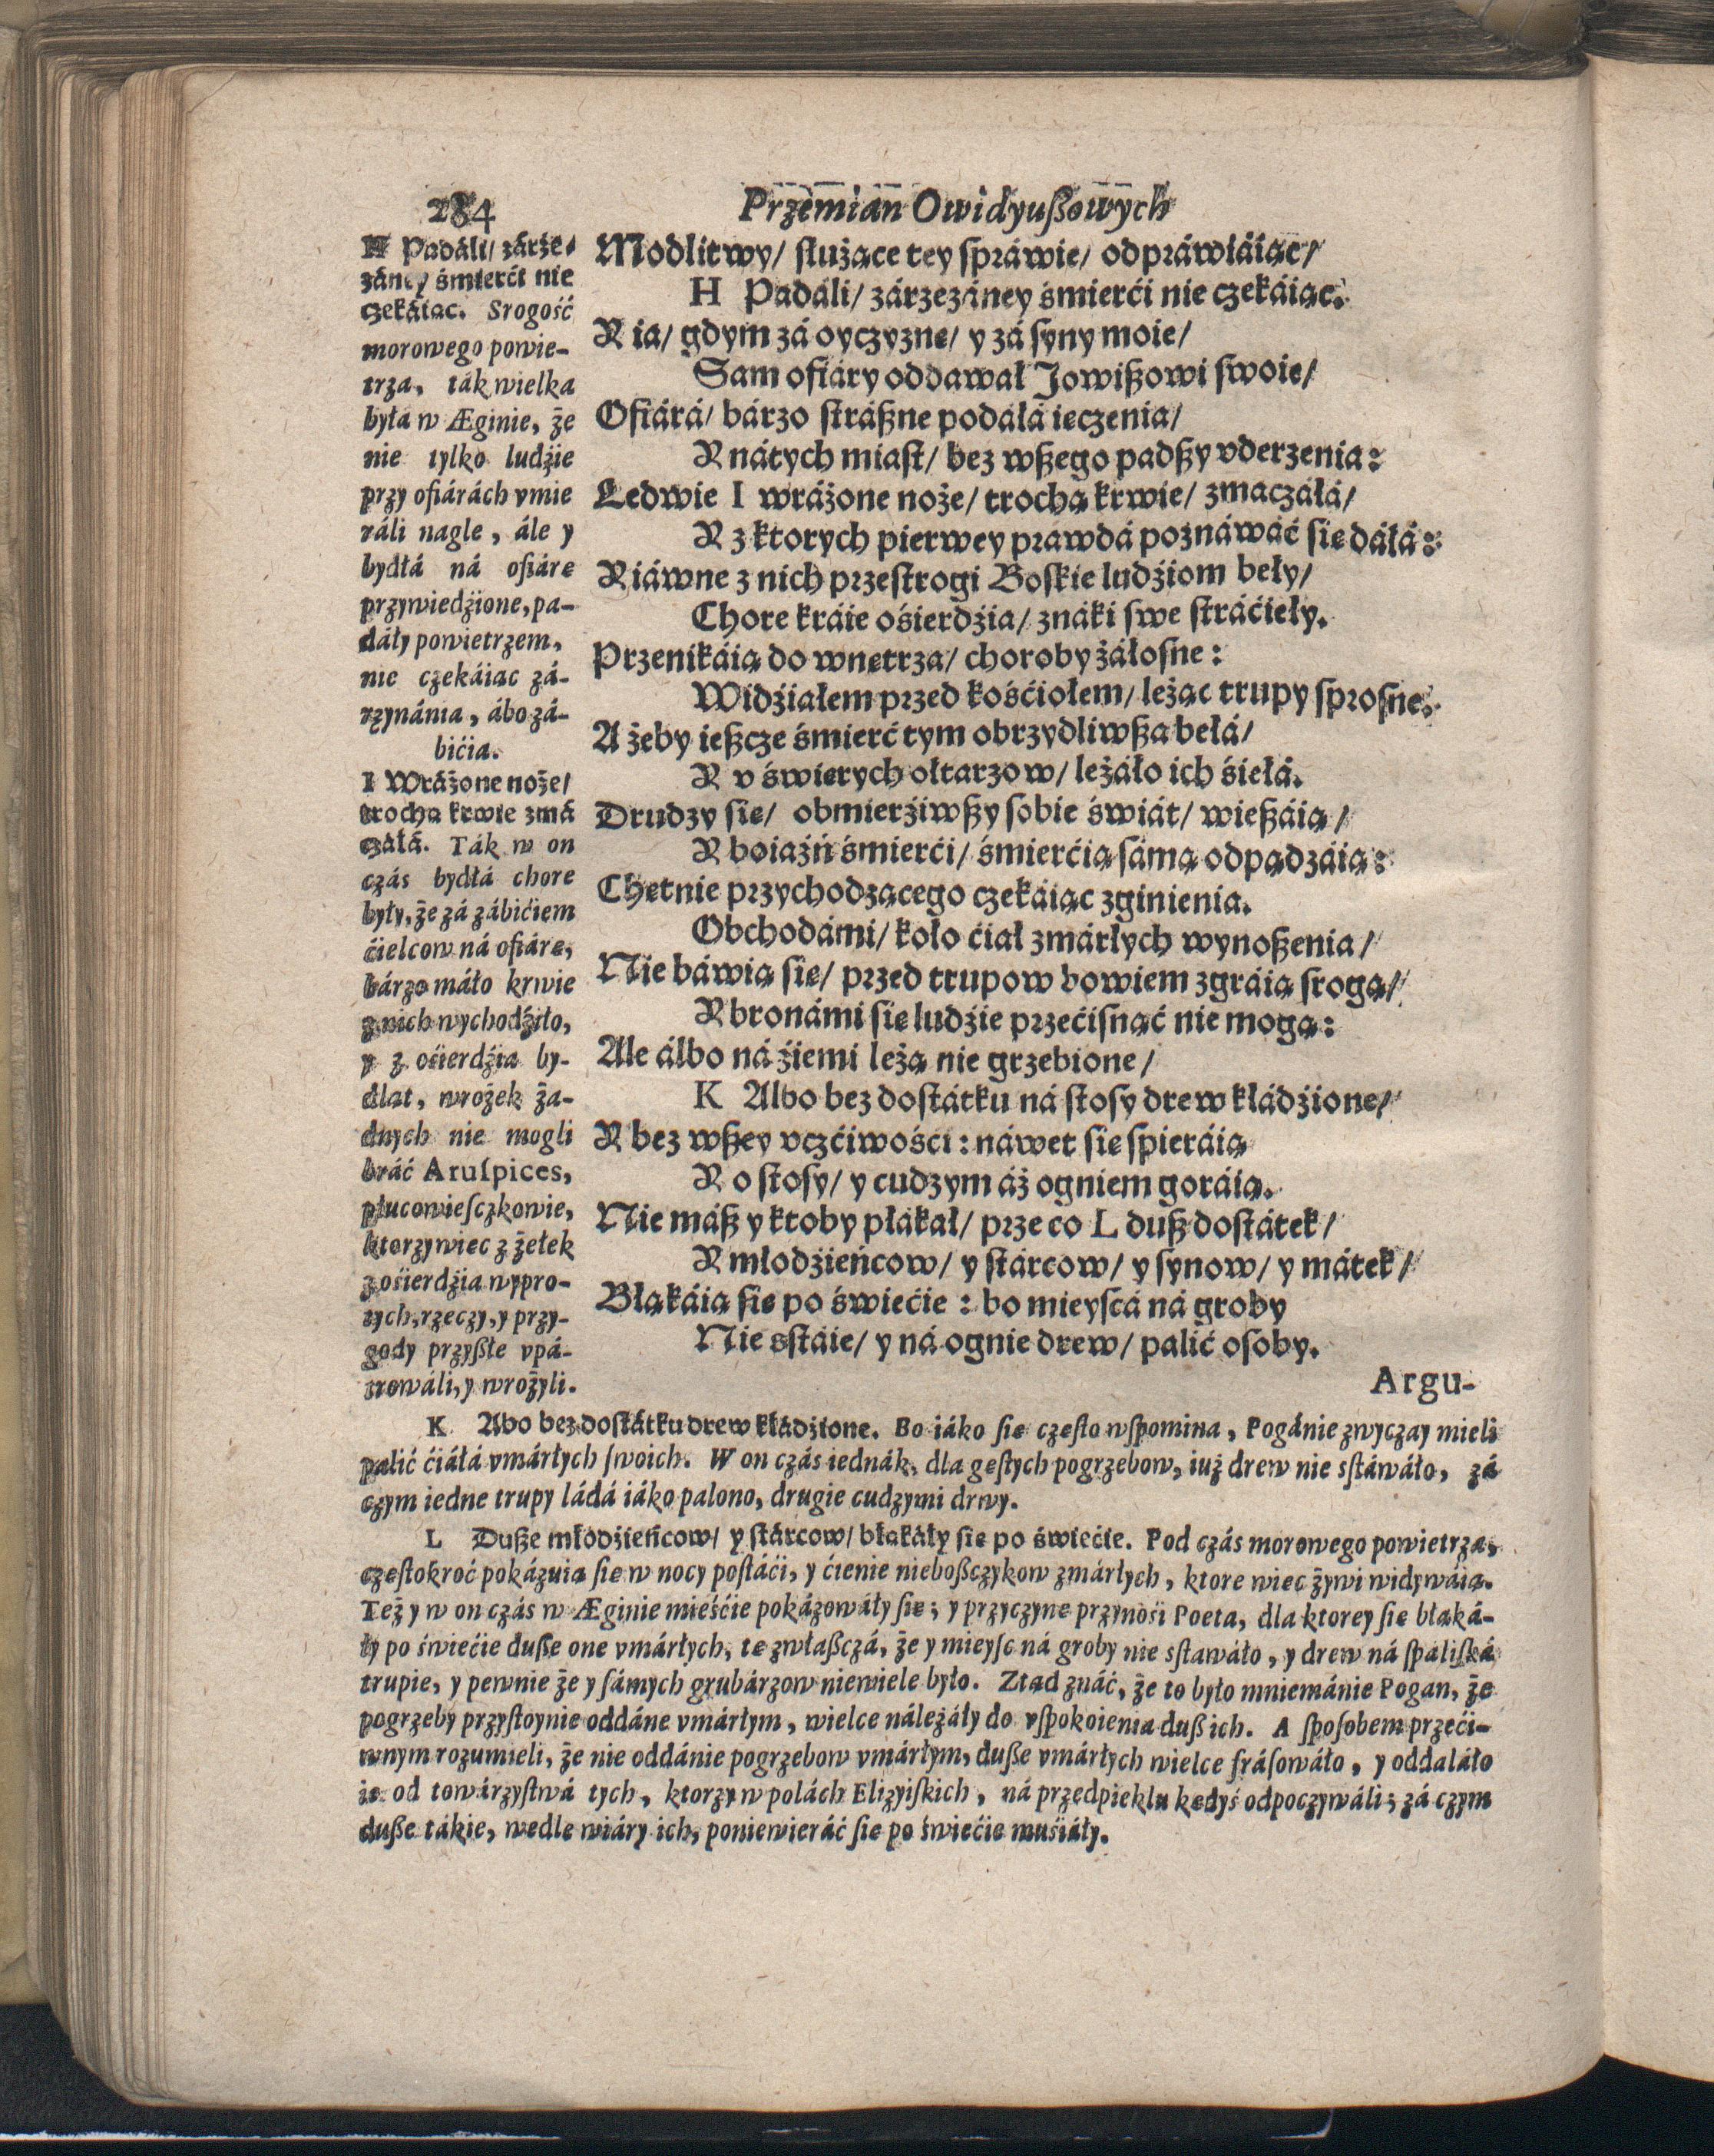 284
Przemian Owidyuſzowych
H Padáli/ zárze-
záney śmierći nie
czekáiąc. Srogość
morowego powie-
trza, ták wielka
byłá w Æginie, że
nie tylko ludźie
przy ofiárách vmie
ráli nagle, ále y
bydłá ná ofiárę
przywiedźione, pa-
dáły powietrzem,
nie czekáiąc zá-
rzynánia, ábo zá-
bićia.
I Wráżone noże/
trochą krwie zmá
czáłá. Ták w on
czás bydłá chore
były, że zá zábićiem
ćielcow ná ofiárę,
bárzo máło krwie
z nich wychodźiło,
y z ośierdźia by-
dląt, wrożek ża-
dnych nie mogli
bráć Aruſpices,
płucowieſczkowie,
ktorzy więc z żełek
z ośierdźia wypro-
tych, rzeczy, y przy-
gody przyſzłe vpá-
trowáli, y wrożyli.
Modlitwy/ służące tey ſpráwie/ odpráwiáiąc/
H Padáli/ zárzezáney śmierći nie czekáiąc.
Y ia/ gdym zá oyczyznę/ y zá ſyny moie/
Sam ofiáry oddawał Jowiſzowi ſwoie/
Ofiárá/ bárzo ſtráſzne podáłá ięczenia/
Y nátych miaſt/ bez wſzego padſzy vderzenia:
Ledwie I wráżone noże/ trochą krwie/ zmaczáłá/
Y z ktorych pierwey prawdá poznáwáć ſię dáłá:
Y iáwne z nich przeſtrogi Boſkie ludźiom beły/
Chore kráie ośierdźia/ znáki ſwe ſtráćieły.
Przenikáią do wnętrza/ choroby żáłoſne:
Widźiałem przed kośćiołem/ leżąc trupy ſproſne.
A żeby ieſzcze śmierć tym obrzydliwſza bełá/
Y v świętych ołtarzow/ leżáło ich śiełá.
Drudzy ſię/ obmierźiwſzy ſobie świát/ wieſzáią/
Y boiaźń śmierći/ śmierćią ſámą odpądzáią:
Chętnie przychodzącego czekáiąc zginienia.
Obchodámi/ koło ćiał zmárłych wynoſzenia/
Nie báwią ſię/ przed trupow bowiem zgráią ſrogą/
Y bronámi ſię ludźie przećiſnąć nie mogą:
Ale álbo ná źiemi leżą nie grzebione/
K Albo bez doſtátku ná ſtoſy drew kłádźione/
Y bez wſzey vczćiwośći: náwet ſię ſpieráią
Y o ſtoſy/ y cudzym áż ogniem goráią.
Nie máſz y ktoby płákał/ prze co L duſz doſtátek/
Y młodźieńcow/ y ſtárcow/ y ſynow/ y mátek/
Błąkáią ſię po świećie: bo mieyſcá ná groby
Nie sſtáie/ y ná ognie drew/ palić oſoby.
Argu-
K Abo bez doſtátku drew kłádźione. Bo iáko ſię częſto wſpomina, Pogánie zwyczay mieli
palić ćiáłá vmárłych ſwoich. W on czás iednák, dla gęſtych pogrzebow, iuż drew nie sſtáwáło, zá
czym iedne trupy ládá iáko palono, drugie cudzymi drwy.
L Duſze młodźieńcow/ y ſtárcow/ błąkáły ſię po świećie. Pod czás morowego powietrza,
częſtokroć pokázuią ſię w nocy poſtáći, y ćienie nieboſzczykow zmárłych, ktore więc żywi widywáią.
Też y w on czás w Æginie mieśćie pokázowáły ſię; y przyczynę przynośi Poeta, dla ktorey ſię błąká-
ły po świećie duſze one vmárłych, tę zwłaſzczá, że y mieyſc ná groby nie sſtawáło, y drew ná ſpáliſká
trupie, y pewnie że y ſámych grubárzow niewiele było. Ztąd znáć, że to było mniemánie Pogan, że
pogrzeby przyſtoynie oddáne vmárłym, wielce náleżáły do vſpokoienia duſz ich. A ſpoſobem przeći-
wnym rozumieli, że nie oddánie pogrzebow vmárłym, duſze vmárłych wielce fráſowáło, y oddaláło
ie od towárzyſtwá tych, ktorzy w polách Elizyiſkich, ná przedpiekłu kędyś odpoczywáli; zá czym
duſze tákie, wedle wiáry ich, poniewieráć ſię po świećie muśiáły.